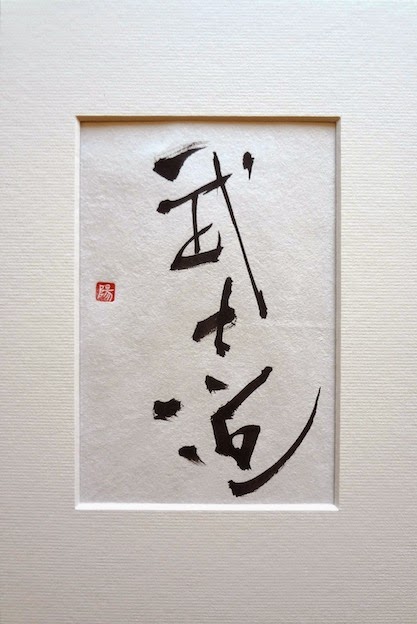 武士道
陽